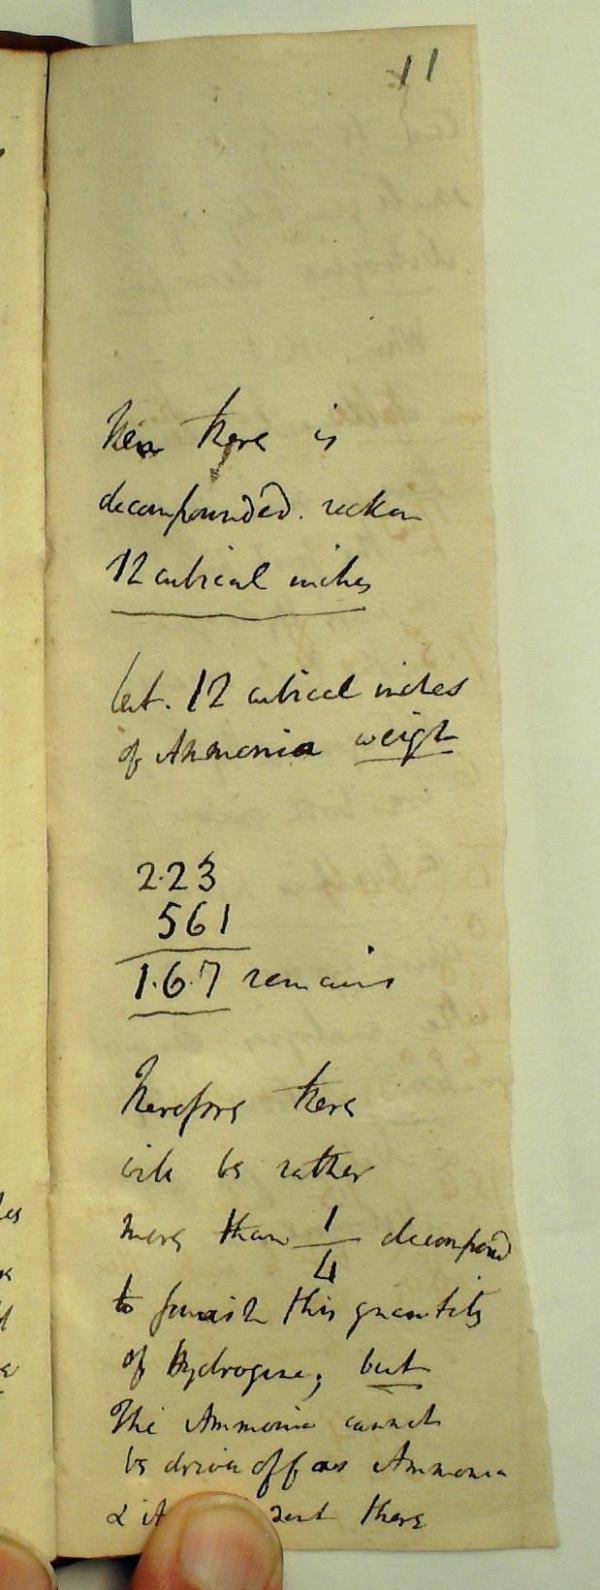 11
then there is
decompounded. reckon
12 cubical inches
but. 12 cubical inches
of Ammonia weigh
2.23
561
1.6.7 remains
Therefore there
will be rather
more than 1/4 decompound
to furnish this quantity
of Hydrogene; but
The Ammonia cannot
be driven off as Ammonia
& it there